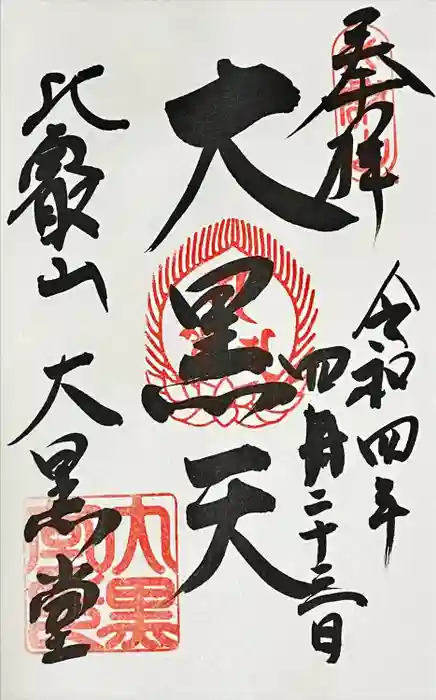 奉拝
令和四年
四月二十三日
大黒天
比叡山 大黒堂